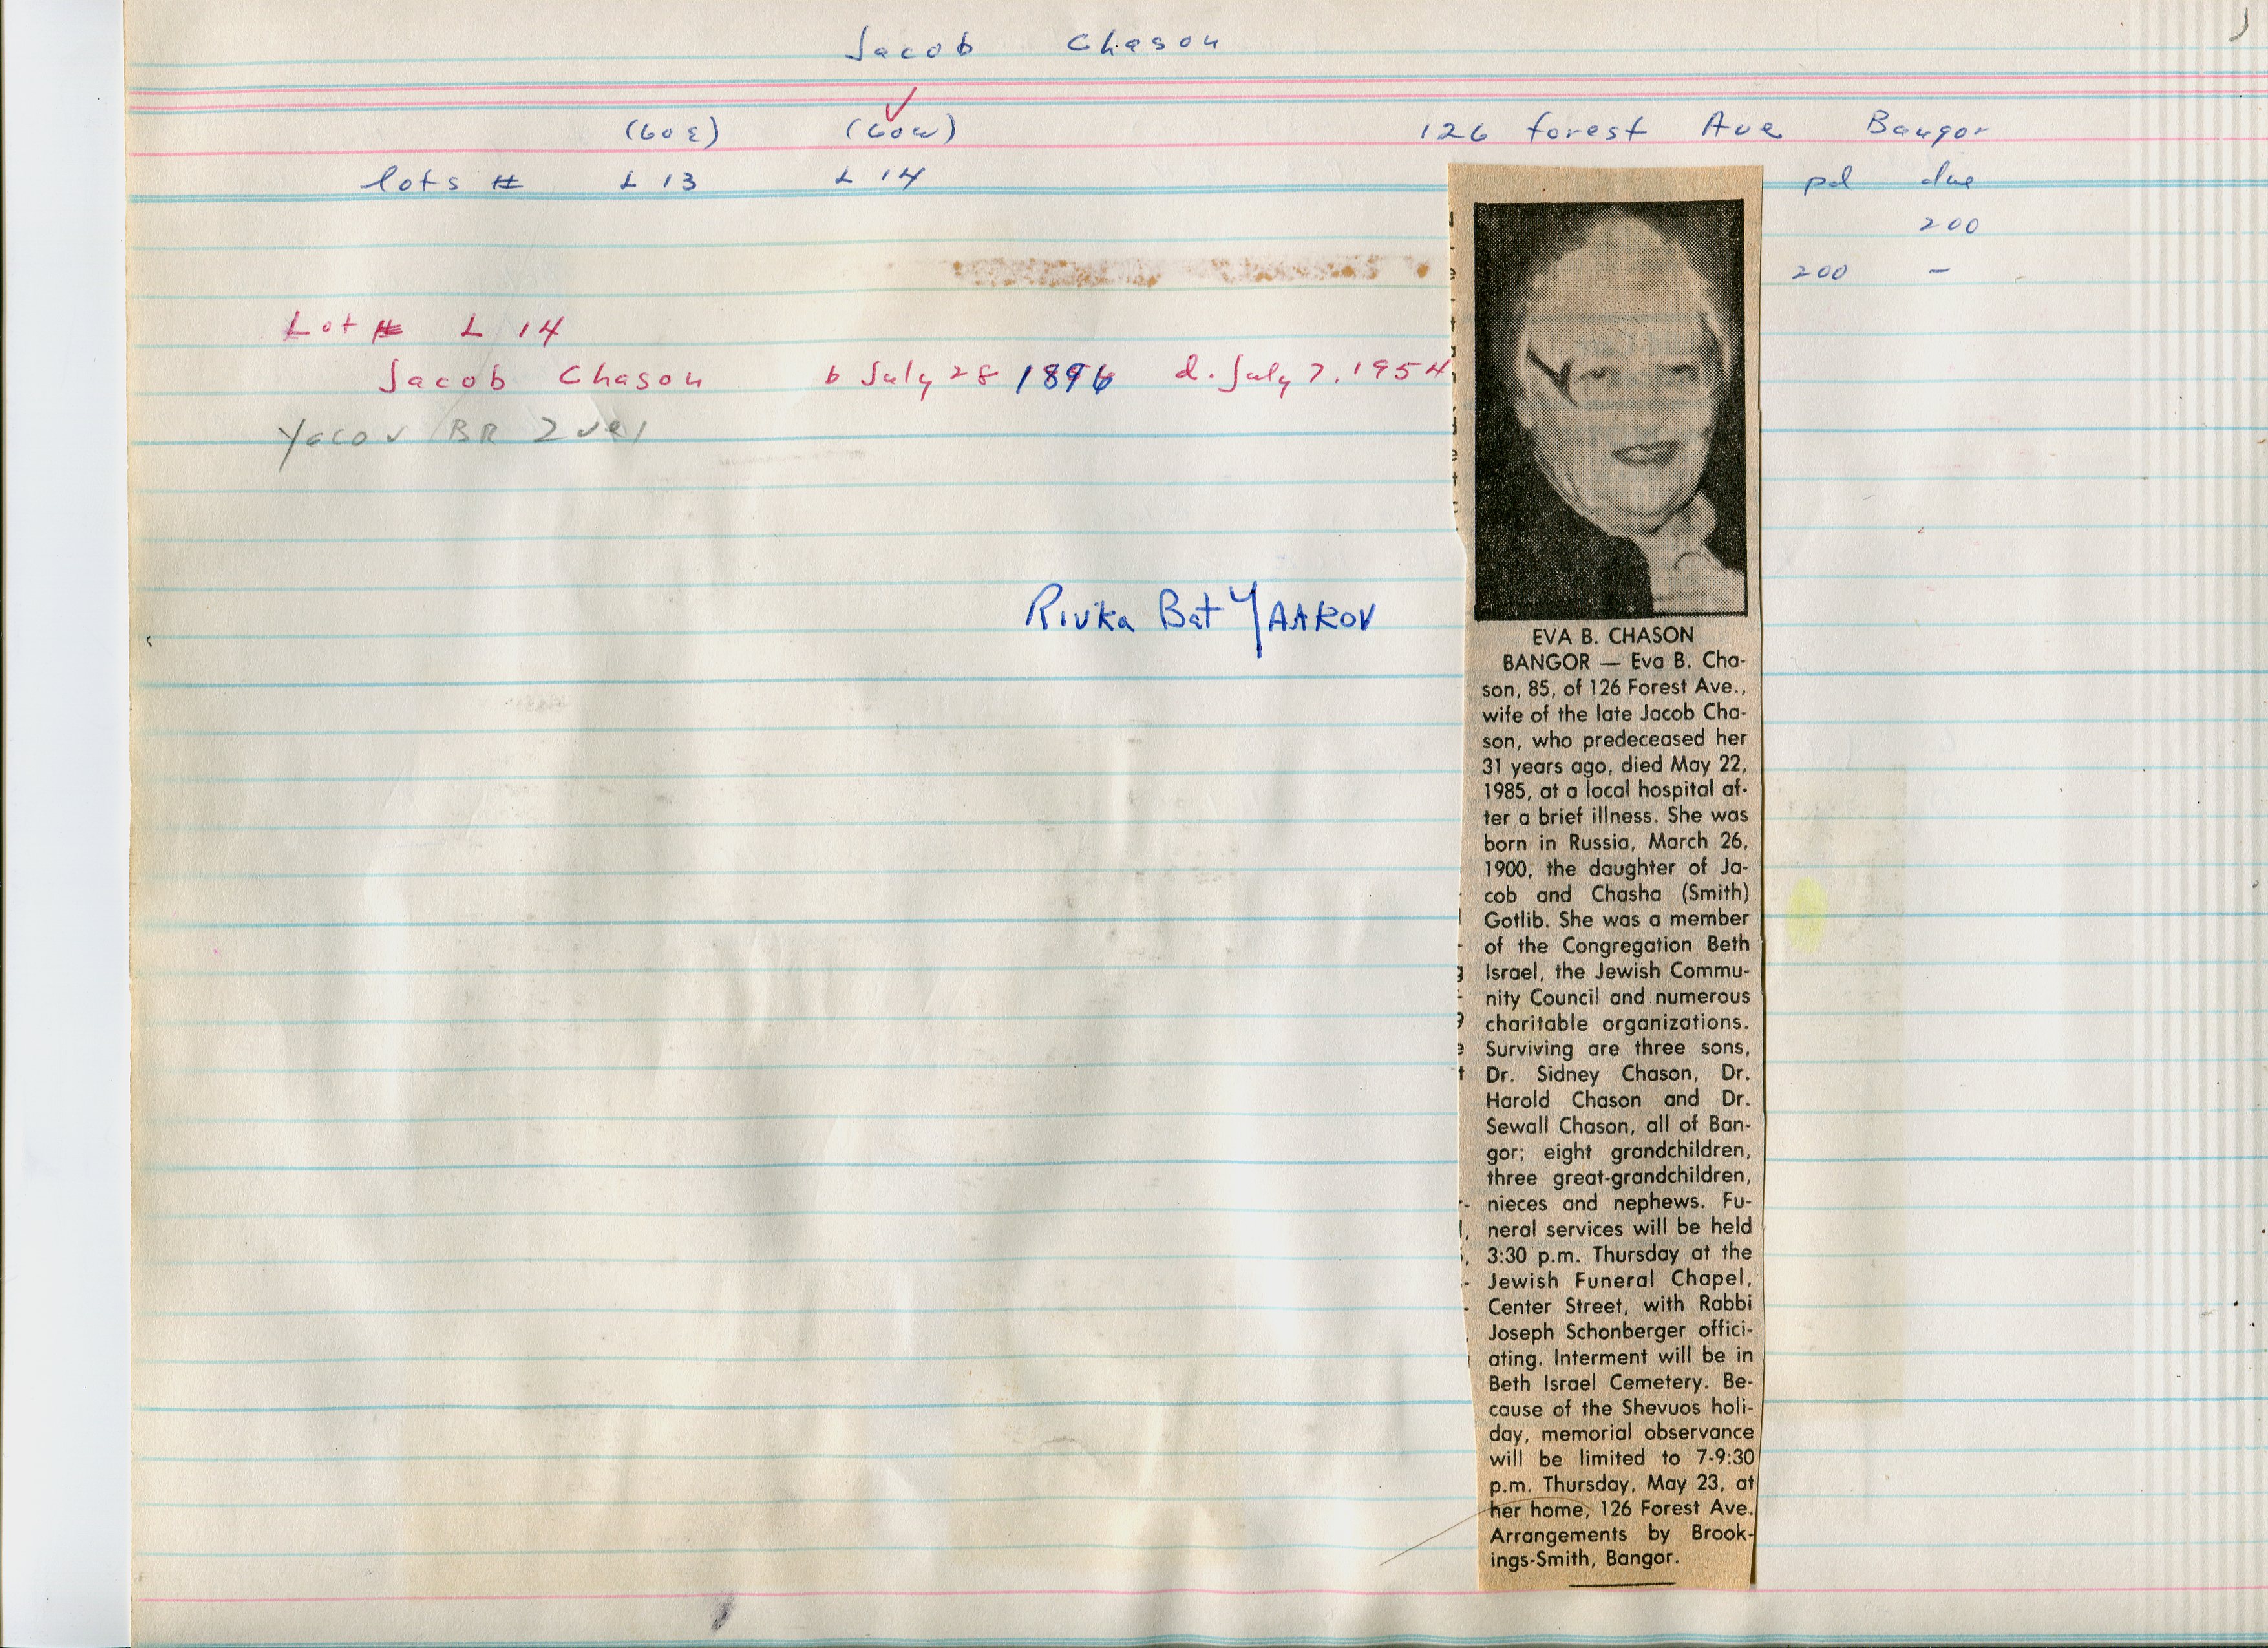 Jacob Chason
(60E) (60W) 126 Forest Ave Bangor
lots # L 13 L 14 pd due
200
200 –
Lot # L 14
Jacob Chason b July 28 1896 d. July 7, 1954
Yacov BR Zvel
Rivka Bat YAAKOV
EVA B. CHASON
BANGOR — Eva B. Cha-
son, 85, of 126 Forest Ave.,
wife of the late Jacob Cha-
son, who predeceased her
31 years ago, died May 22,
1985, at a local hospital af-
ter a brief illness. She was
born in Russia, March 26,
1900, the daughter of Ja-
cob and Chasha (Smith)
Gotlib. She was a member
of the Congregation Beth
Israel, the Jewish Commu-
nity Council and numerous
charitable organizations.
Surviving are three sons,
Dr. Sidney Chason, Dr.
Harold Chason and Dr.
Sewall Chason, all of Ban-
gor; eight grandchildren,
three great-grandchildren,
nieces and nephews. Fu-
neral services will be held
3:30 p.m. Thursday at the
Jewish Funeral Chapel,
Center Street, with Rabbi
Joseph Schonberger offici-
ating. Interment will be in
Beth Israel Cemetery. Be-
cause of the Shevuos holi-
day, memorial observance
will be limited to 7-9:30
p.m. Thursday, May 23, at
her home, 126 Forest Ave.
Arrangements by Brook-
ings-Smith, Bangor.